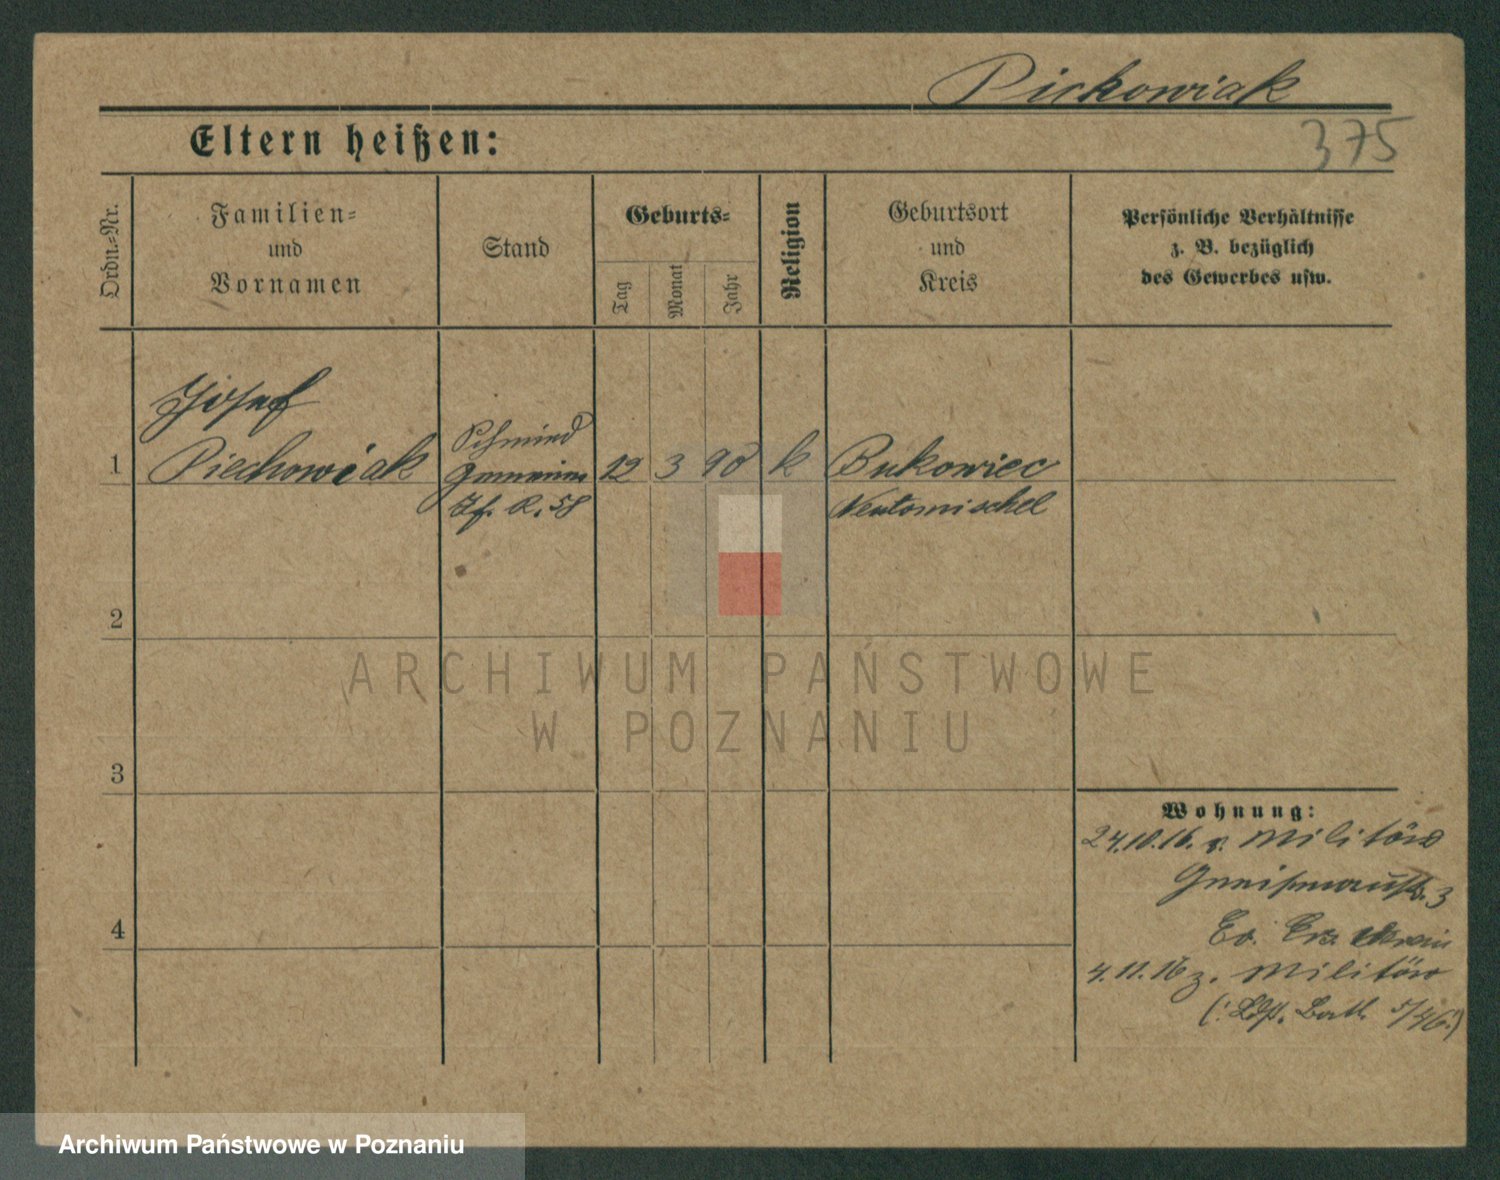 Pickowiak
375
Eltern heißen:
Ordn.=Nr.
Familien=
und
Vornamen
Stand
Geburts=
Tag
Monat
Jahr
Religion
Geburtsort
und
Kreis
Persönliche Verhältnisse
z. B. bezüglich
des Gewerbes usw.
Josef
1 Piechowiak
Schmied
Jf. R. 58
12 3 90 k
Bukowiec
Neutomischel
2
3
4
ARCHIWUM PAŃSTWOWE
W POZNANIU
Wohnung:
24.10.16. v. Militär
Gneisenaustr. 3
4.11.16 z. Militär
Archiwum Państwowe w Poznaniu